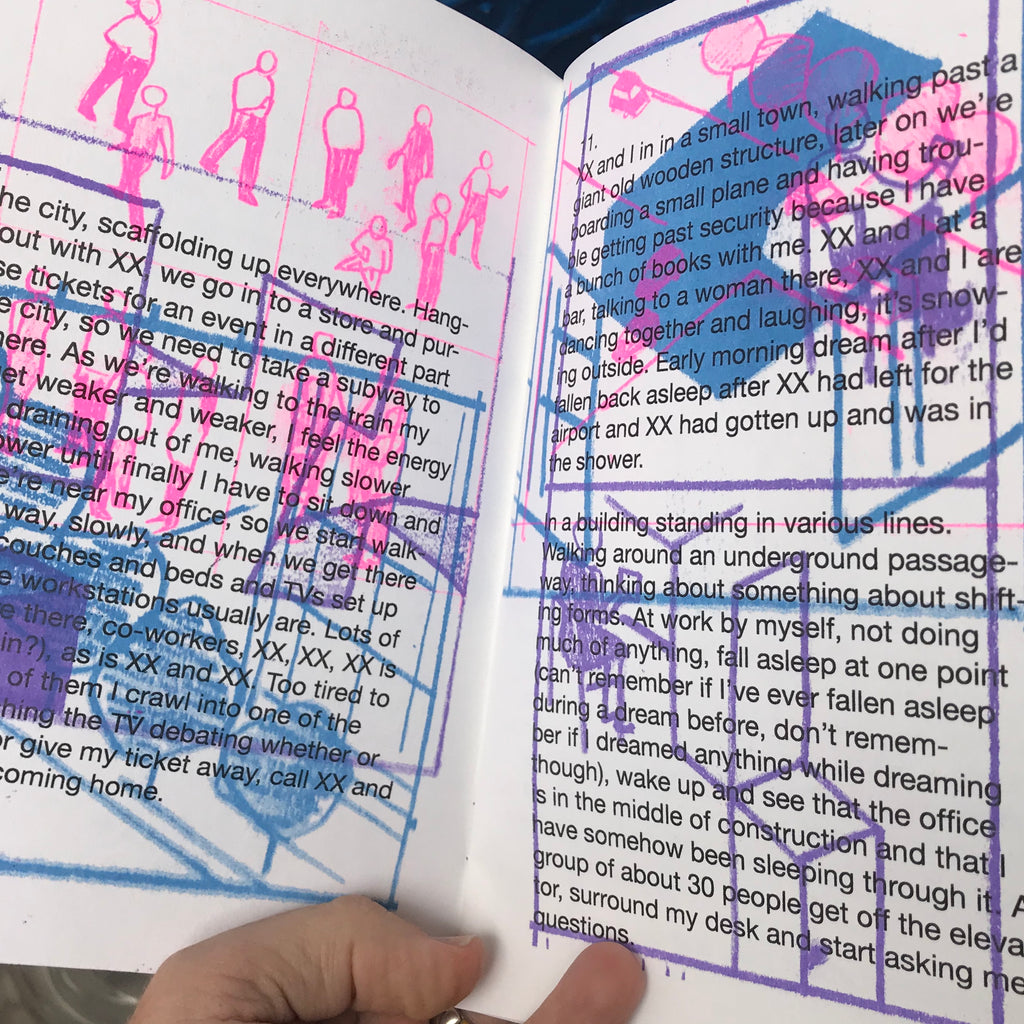 he city, scaffolding up everywhere. Hang-
out with XX, we go in to a store and pur-
se tickets for an event in a different part
e city, so we need to take a subway to
here. As we're walking to the train my
get weaker and weaker, I feel the energy
draining out of me, walking slower
ower until finally I have to sit down and
e're near my office, so we start walk-
way, slowly, and when we get there
couches and beds and TVs set up
e workstations usually are. Lots of
e there, co-workers, XX, XX, XX is
in?), as is XX and XX. Too tired to
of them I crawl into one of the
hing the TV debating whether or
or give my ticket away, call XX and
coming home.
11.
XX and I in in a small town, walking past a
giant old wooden structure, later on we're
boarding a small plane and having trou-
ble getting past security because I have
a bunch of books with me. XX and I at a
bar, talking to a woman there, XX and I are
dancing together and laughing, it's snow-
ing outside. Early morning dream after I'd
fallen back asleep after XX had left for the
airport and XX had gotten up and was in
the shower.
In a building standing in various lines.
Walking around an underground passage-
way, thinking about something about shift-
ing forms. At work by myself, not doing
much of anything, fall asleep at one point
(can't remember if I've ever fallen asleep
during a dream before, don't remem-
ber if I dreamed anything while dreaming
though), wake up and see that the office
is in the middle of construction and that I
have somehow been sleeping through it. A
group of about 30 people get off the eleva
tor, surround my desk and start asking me
questions.